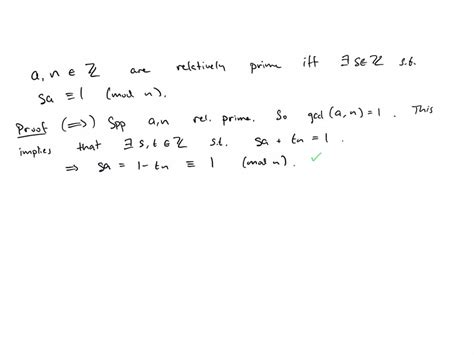 a, n ∈ ℤ are relatively prime iff ∃ s∈ℤ s.t.
sa ≡ 1 (mod n).
Proof (⟹) Spp a,n rel. prime. So gcd(a,n)=1. This
implies that ∃ s,t ∈ ℤ s.t. sa + tn = 1.
⇒ sa = 1 - tn ≡ 1 (mod n). ✓